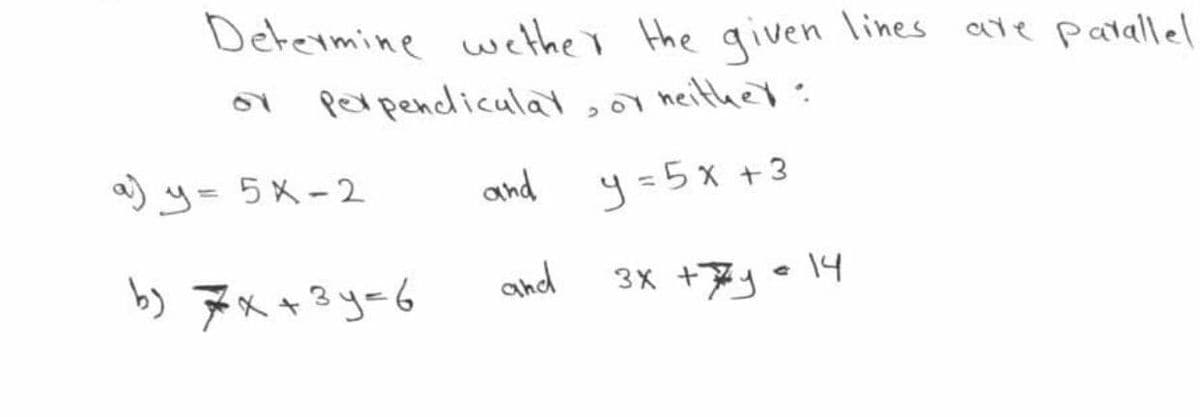 Determine wether the given lines are parallel
or perpendicular, or neither:
a) y = 5x - 2 and y = 5x + 3
b) 7x + 3y = 6 and 3x + 7y = 14